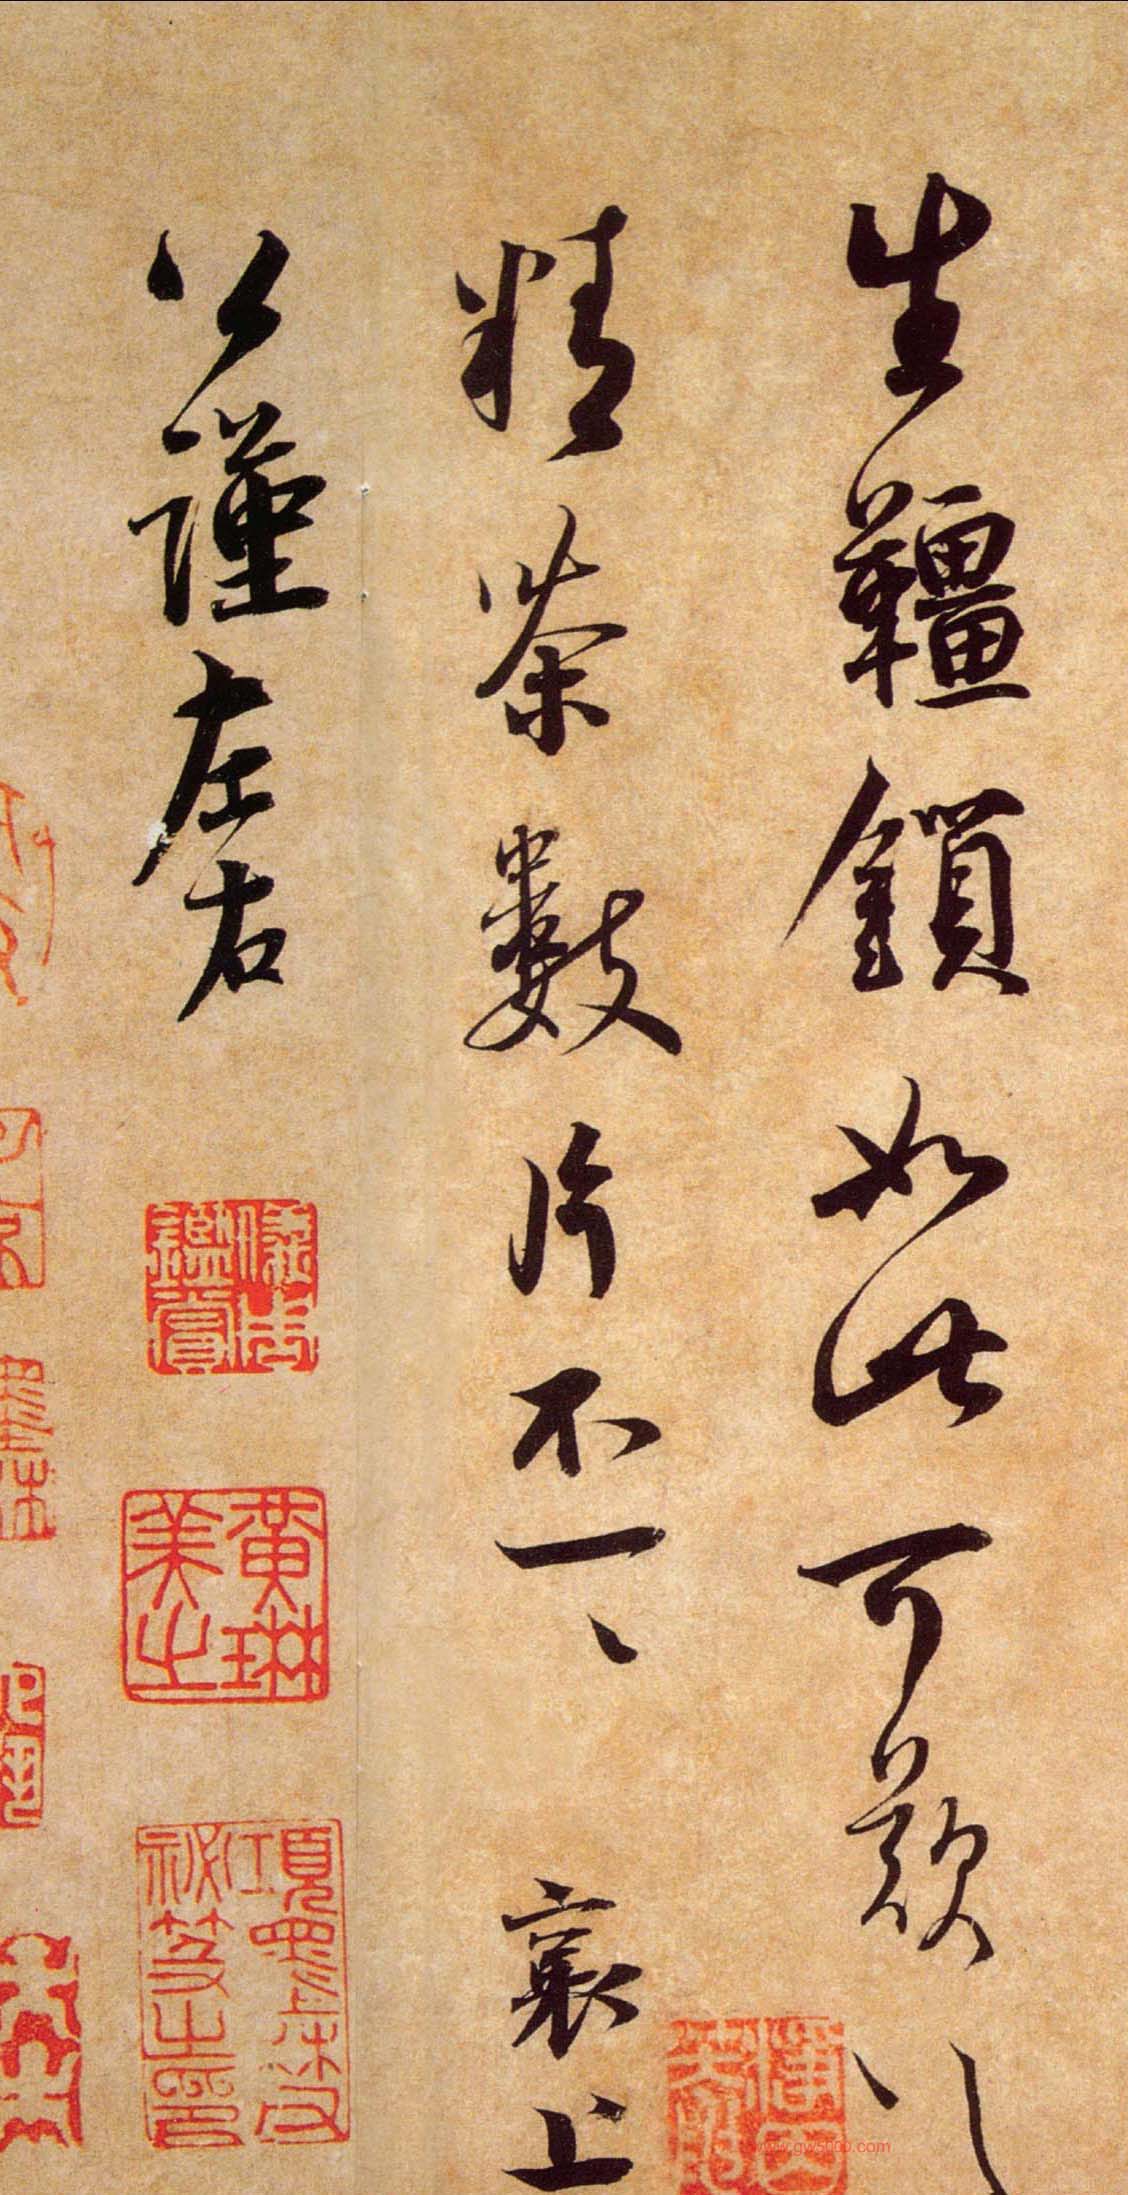 生韁鎖如此可歎
精茶數片不一一 襄上
公謹左右
儀周鑑賞
黃琳美之
項墨林父祕笈之印
www.gw5000.com